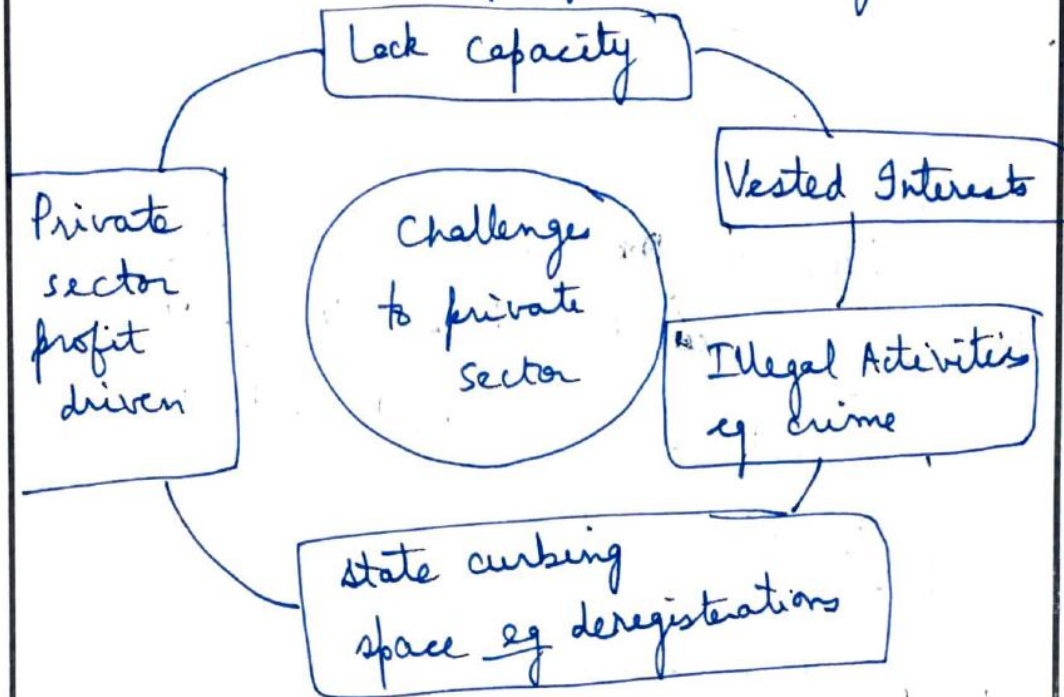 Lack Capacity
Vested Interests
Private
sector
profit
driven
Challenges
to private
sector
Illegal Activities
eg crime
state curbing
space eg deregisterations